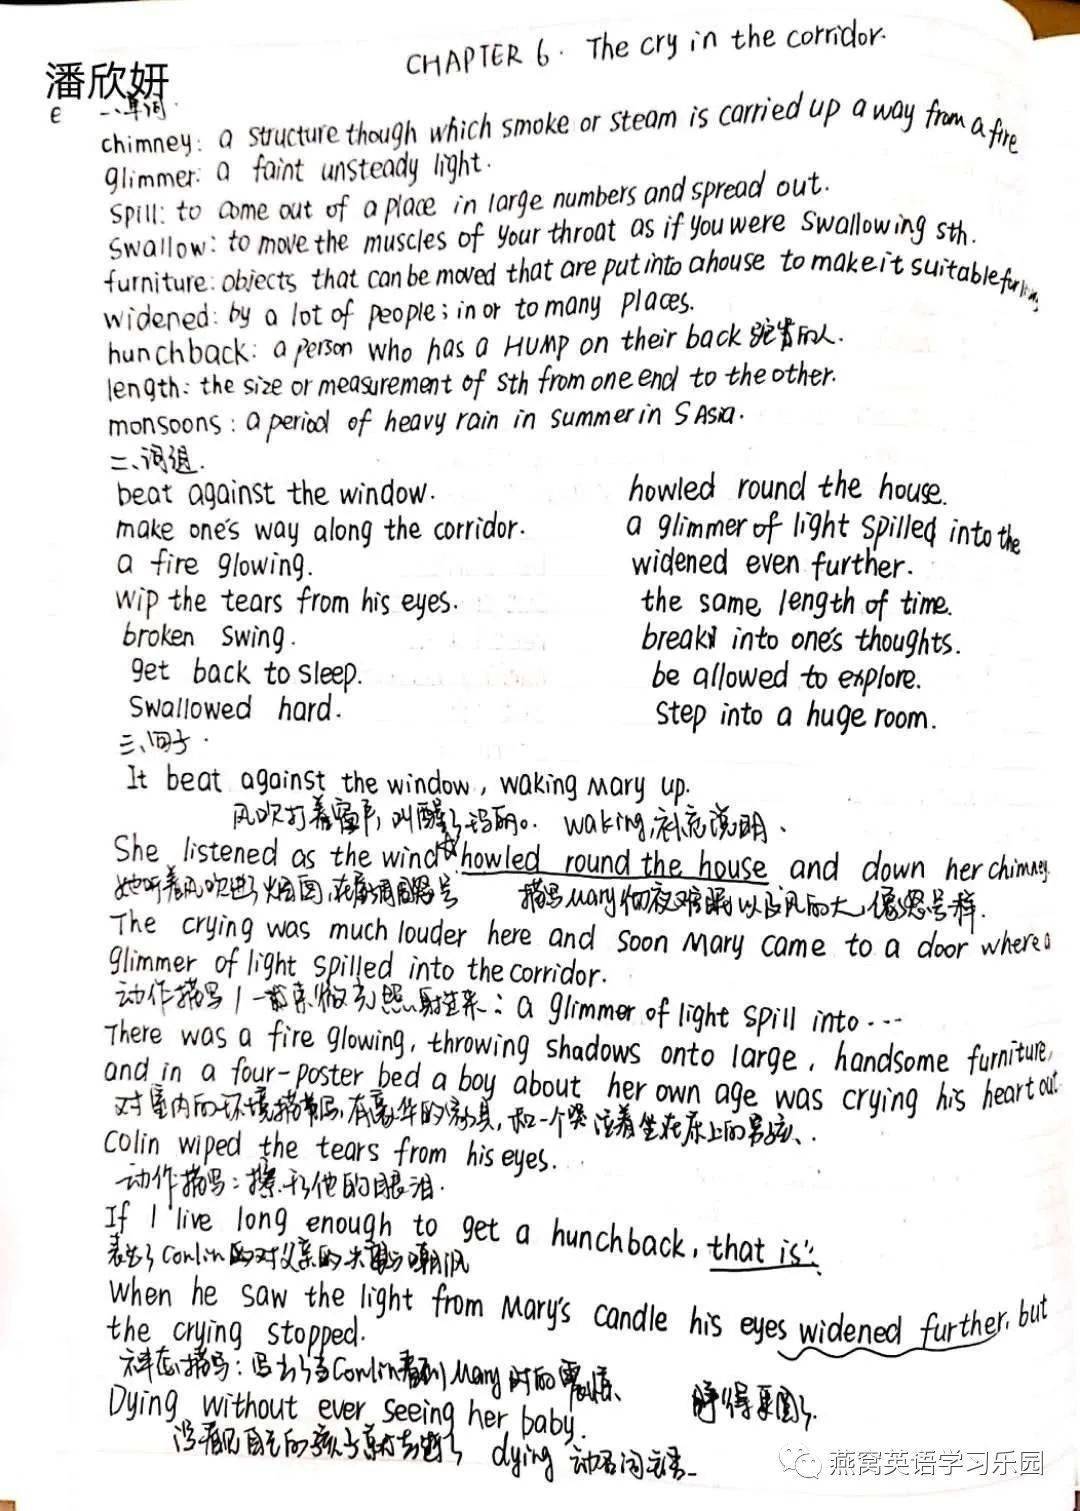 CHAPTER 6. The cry in the corridor.
潘欣妍
e 一、单词.
chimney: a structure though which smoke or steam is carried up a way from a fire
glimmer: a faint unsteady light.
spill: to come out of a place in large numbers and spread out.
swallow: to move the muscles of your throat as if you were swallowing sth.
furniture: objects that can be moved that are put into a house to make it suitable
widened: by a lot of people; in or to many places.
hunchback: a person who has a HUMP on their back 驼背的人.
length: the size or measurement of sth from one end to the other.
monsoons: a period of heavy rain in summer in S Asia.
二、词组.
beat against the window. howled round the house.
make one's way along the corridor. a glimmer of light spilled into the
a fire glowing. widened even further.
wip the tears from his eyes. the same length of time.
broken swing. break into one's thoughts.
get back to sleep. be allowed to explore.
Swallowed hard. step into a huge room.
三、句子.
It beat against the window, waking Mary up.
风吹打着窗户, 叫醒了玛丽. waking, 补充说明、
She listened as the wind howled round the house and down her chimney.
她听着风吹进了烟囱, 在周围怒号 描写Mary彻夜难眠以及风的大, 像怒号一样.
The crying was much louder here and soon Mary came to a door where a
glimmer of light spilled into the corridor.
动作描写 / 一束微光照射进来: a glimmer of light spill into ...
There was a fire glowing, throwing shadows onto large, handsome furniture,
and in a four-poster bed a boy about her own age was crying his heart out.
对室内的环境描写, 有豪华的家具, 和一个哭泣着坐在床上的男孩、.
Colin wiped the tears from his eyes.
动作描写: 擦干他的眼泪.
If I live long enough to get a hunchback, that is".
表达了Conlin对父亲的嘲讽
When he saw the light from Mary's candle his eyes widened further, but
the crying stopped.
神态描写: 写出了当Conlin看到Mary时的震惊、 睁得更圆了.
Dying without ever seeing her baby.
没看见自己的孩子就去世了 dying 动名词主语_
燕窝英语学习乐园